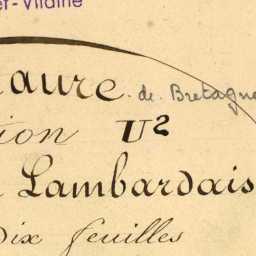 et-Vilaine
aure de Bretagne
ion U²
Lambardais
Dix feuilles